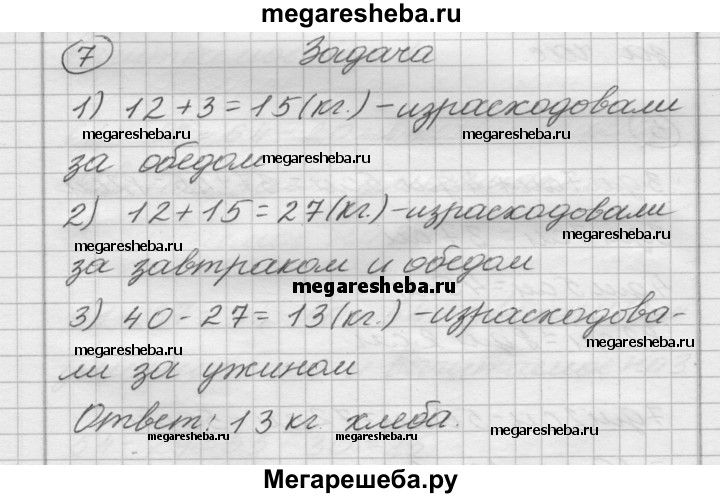 megaresheba.ru
7 Задача
1) 12 + 3 = 15 (кг.) - израсходовали
megaresheba.ru megaresheba.ru
за обедом megaresheba.ru
2) 12 + 15 = 27 (кг.) - израсходовали
megaresheba.ru megaresheba.ru
за завтраком и обедом
megaresheba.ru
3) 40 - 27 = 13 (кг.) - израсходова-
megaresheba.ru megaresheba.ru
ли за ужином
Ответ: 13 кг. хлеба.
megaresheba.ru megaresheba.ru megaresheba.ru
Мегарешеба.ру